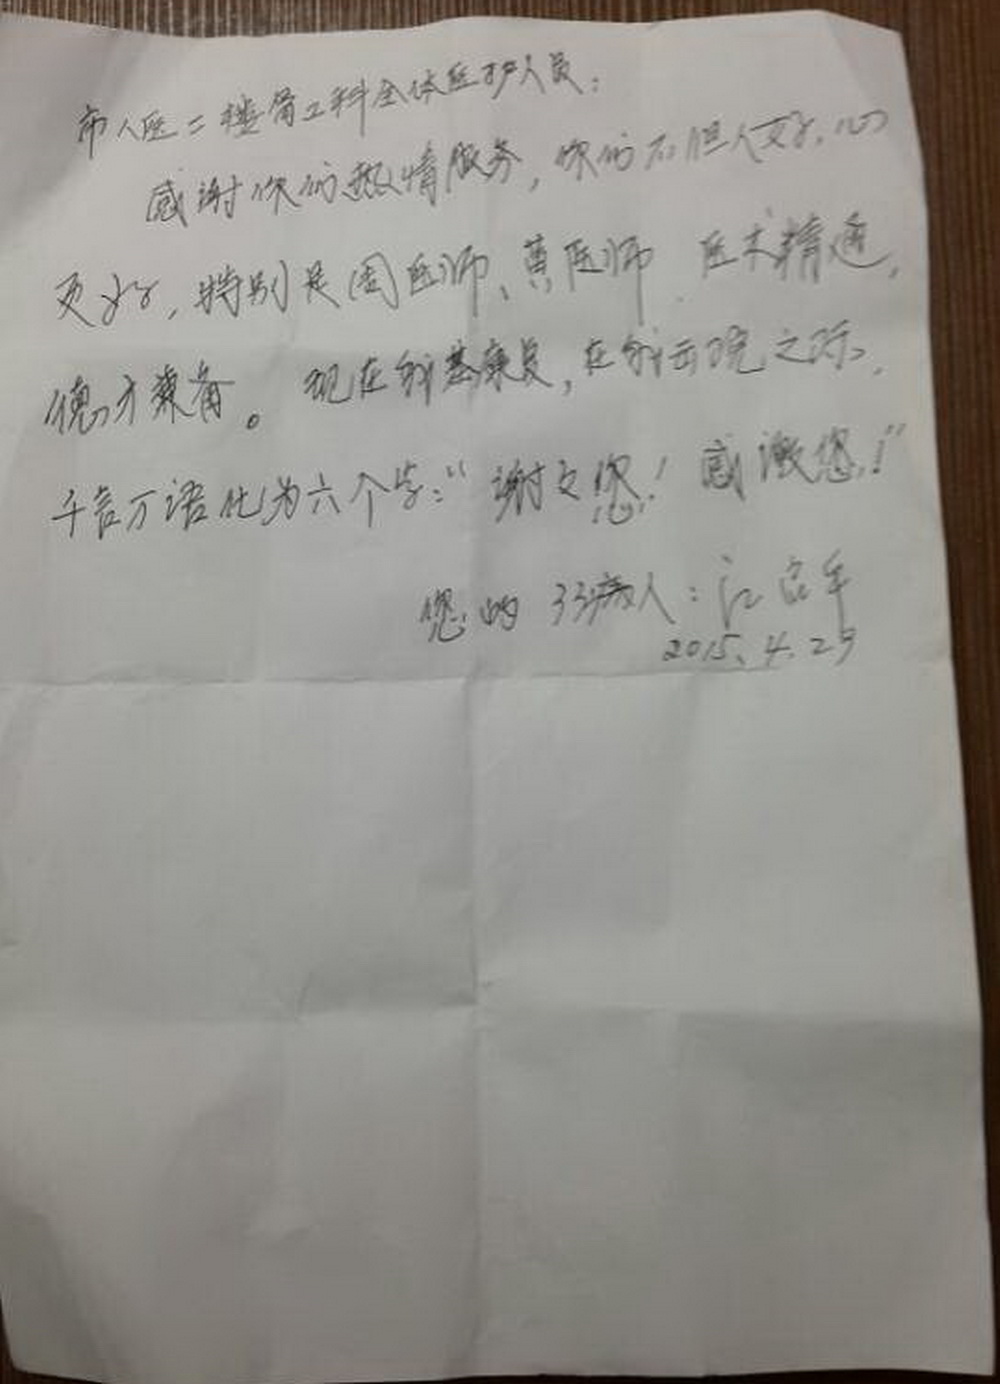 市人医二楼骨工科全体医护人员：
感谢你们热情服务，你们不但人好，心
更好，特别是周医师、黄医师 医术精通，
德才兼备。现在我基康复，在我出院之际，
千言万语化为六个字：“谢文您！感激您！”
您的 33病人：江
2015.4.29